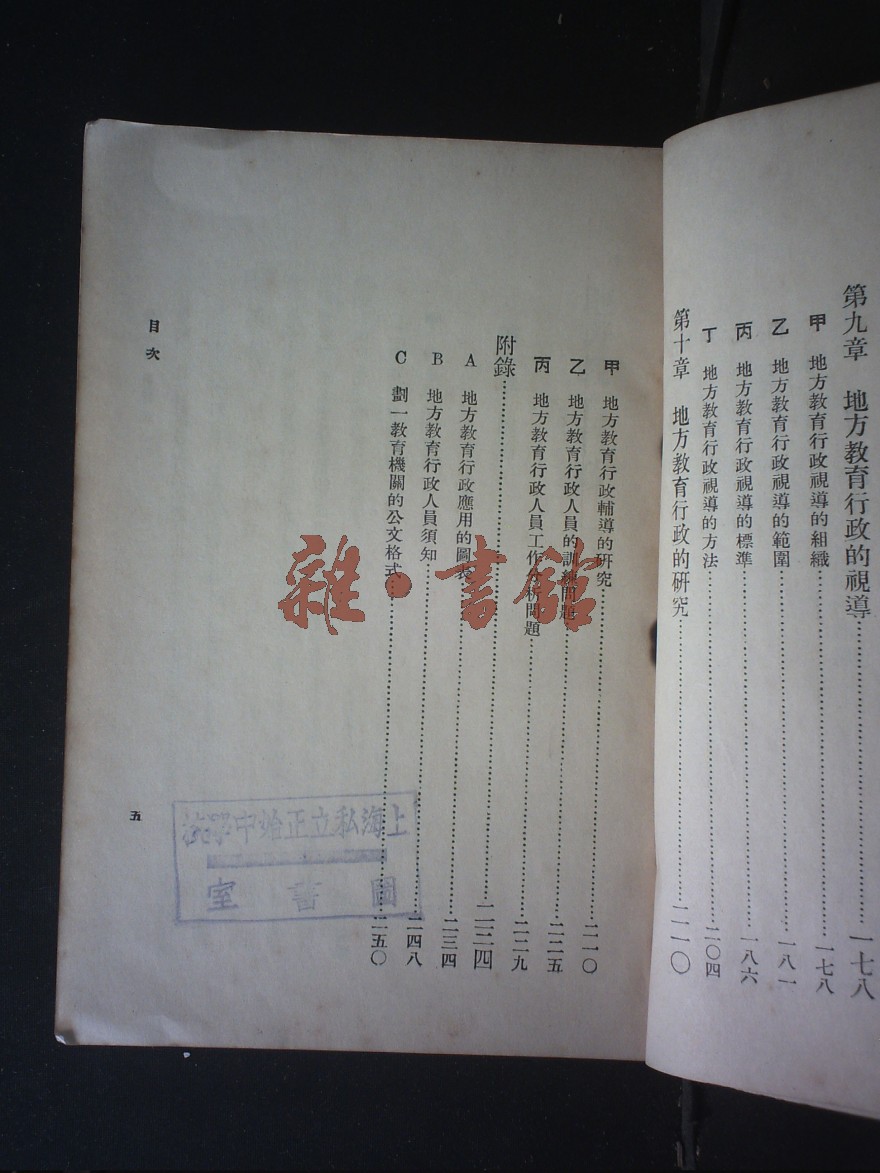 第九章 地方教育行政的視導……一七八
甲 地方教育行政視導的組織……一七八
乙 地方教育行政視導的範圍……一八一
丙 地方教育行政視導的標準……一八六
丁 地方教育行政視導的方法……二〇四
第十章 地方教育行政的研究……二一〇
甲 地方教育行政輔導的研究……二一〇
乙 地方教育行政人員的訓練問題……二二五
丙 地方教育行政人員工作分析問題……二二九
附錄……二三四
A 地方教育行政應用的圖表……二三四
B 地方教育行政人員須知……二四八
C 劃一教育機關的公文格式……二五〇
目次
五
上海私立正始中學校
圖書室
雜·書館